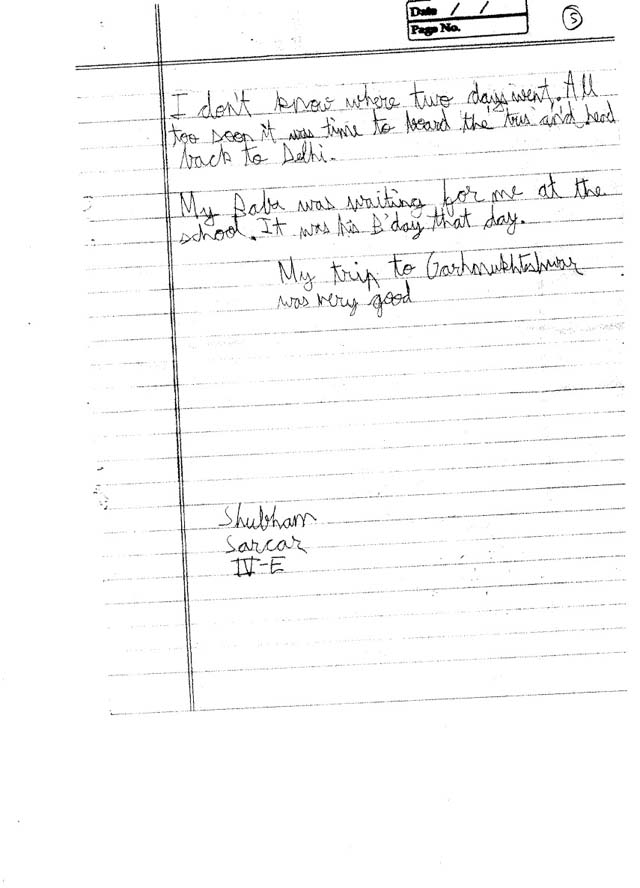 Date / /
Page No.
5
I don't know where two days went. All
too soon it was time to board the bus and head
back to Delhi.
My Baba was waiting for me at the
school. It was his B'day that day.
My trip to Garhmukhteshwar
was very good
Shubham
Sarcar
IV-E